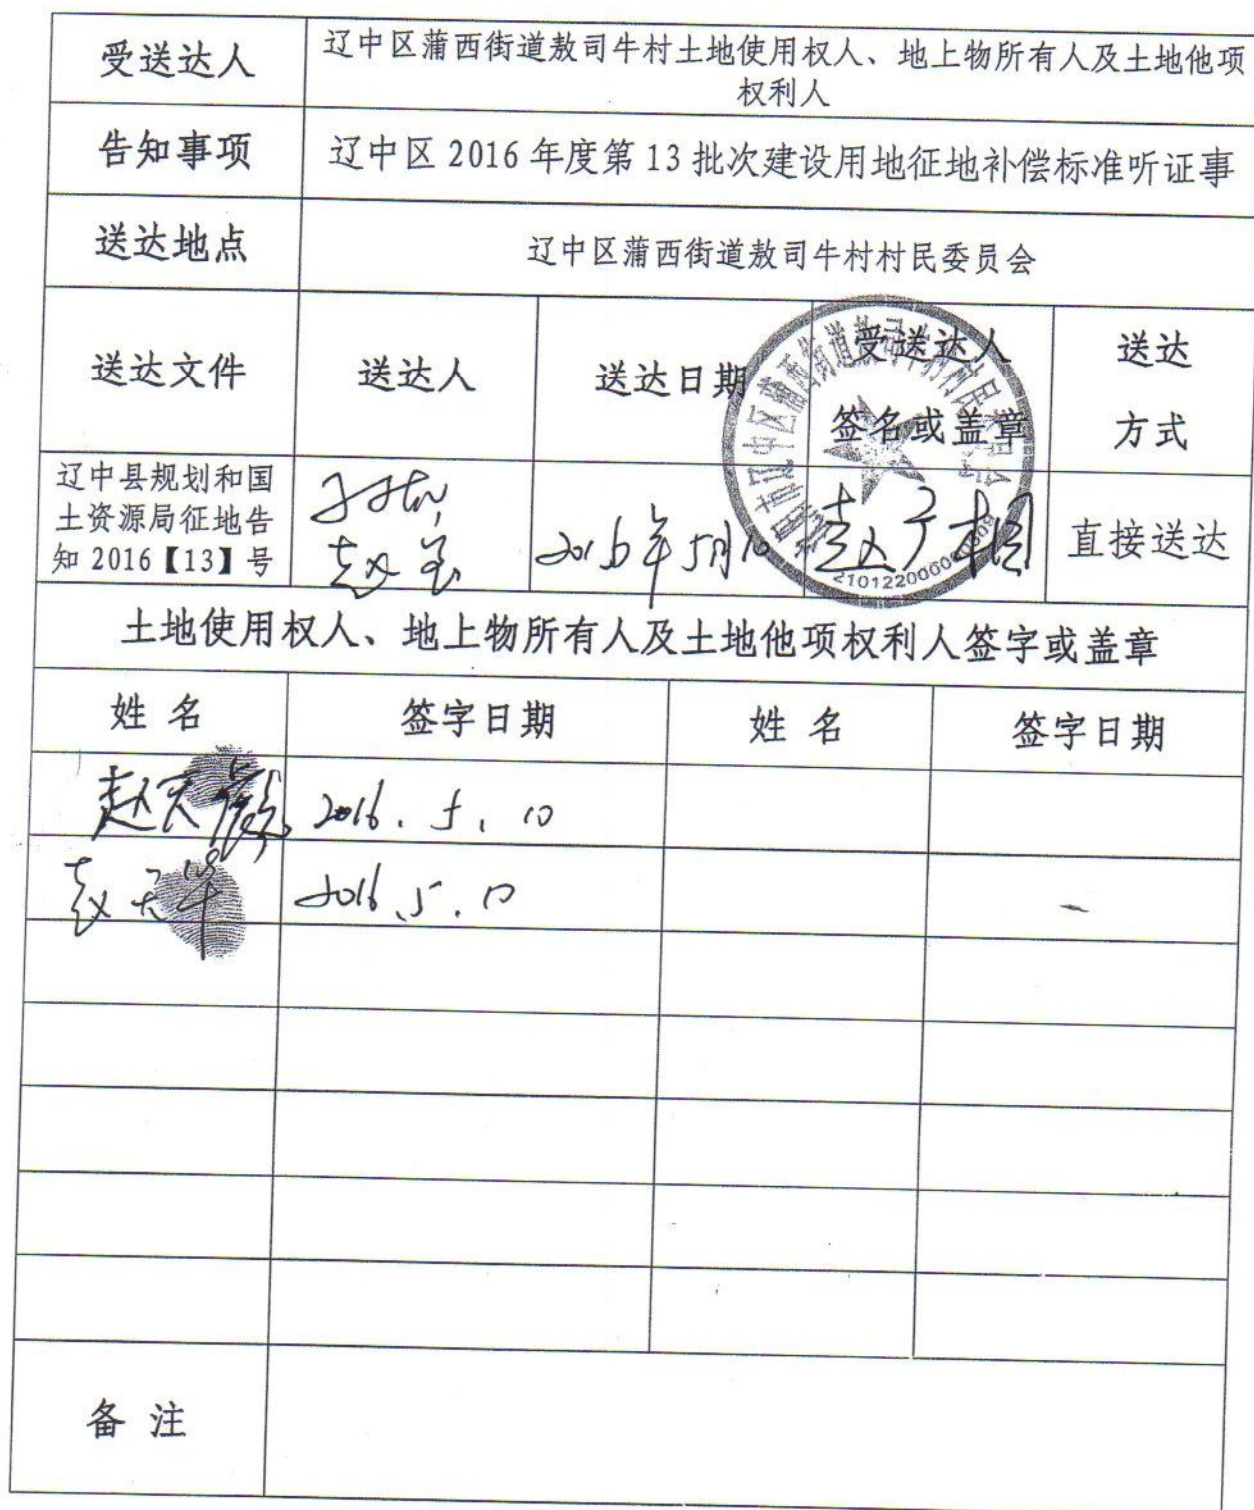 受送达人
辽中区蒲西街道敖司牛村土地使用权人、地上物所有人及土地他项
权利人
告知事项
辽中区 2016 年度第 13 批次建设用地征地补偿标准听证事
送达地点
辽中区蒲西街道敖司牛村村民委员会
送达文件
送达人
送达日期
受送达人
签名或盖章
送达
方式
辽中县规划和国
土资源局征地告
知 2016【13】号
2016年5月10
赵广相
直接送达
土地使用权人、地上物所有人及土地他项权利人签字或盖章
姓 名
签字日期
姓 名
签字日期
2016. 5. 10
赵天华
2016.5.10
备 注